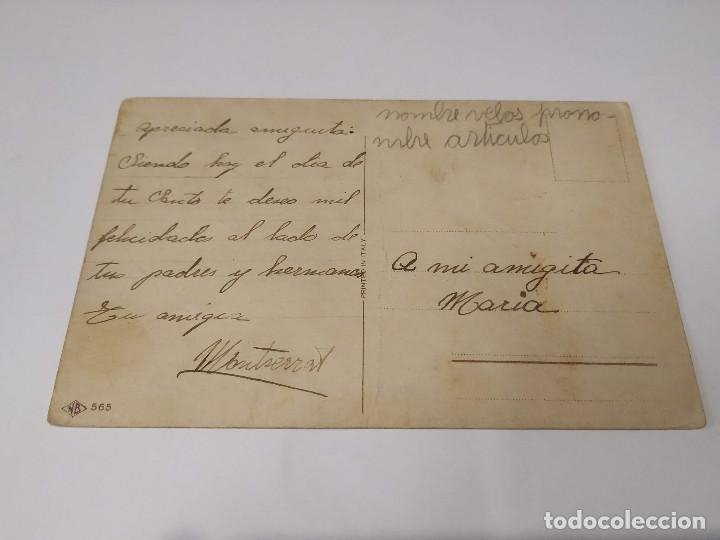 apreciada amiguita:
Siendo hoy el dia de
tu Santo te deseo mil
felicidades al lado de
tus padres y hermanos
Tu amiga
Montserrat
NB 565
PRINTED IN ITALY
nombre velos prono-
mbre articulos
A mi amigita
Maria
todocoleccion
todocoleccion.net